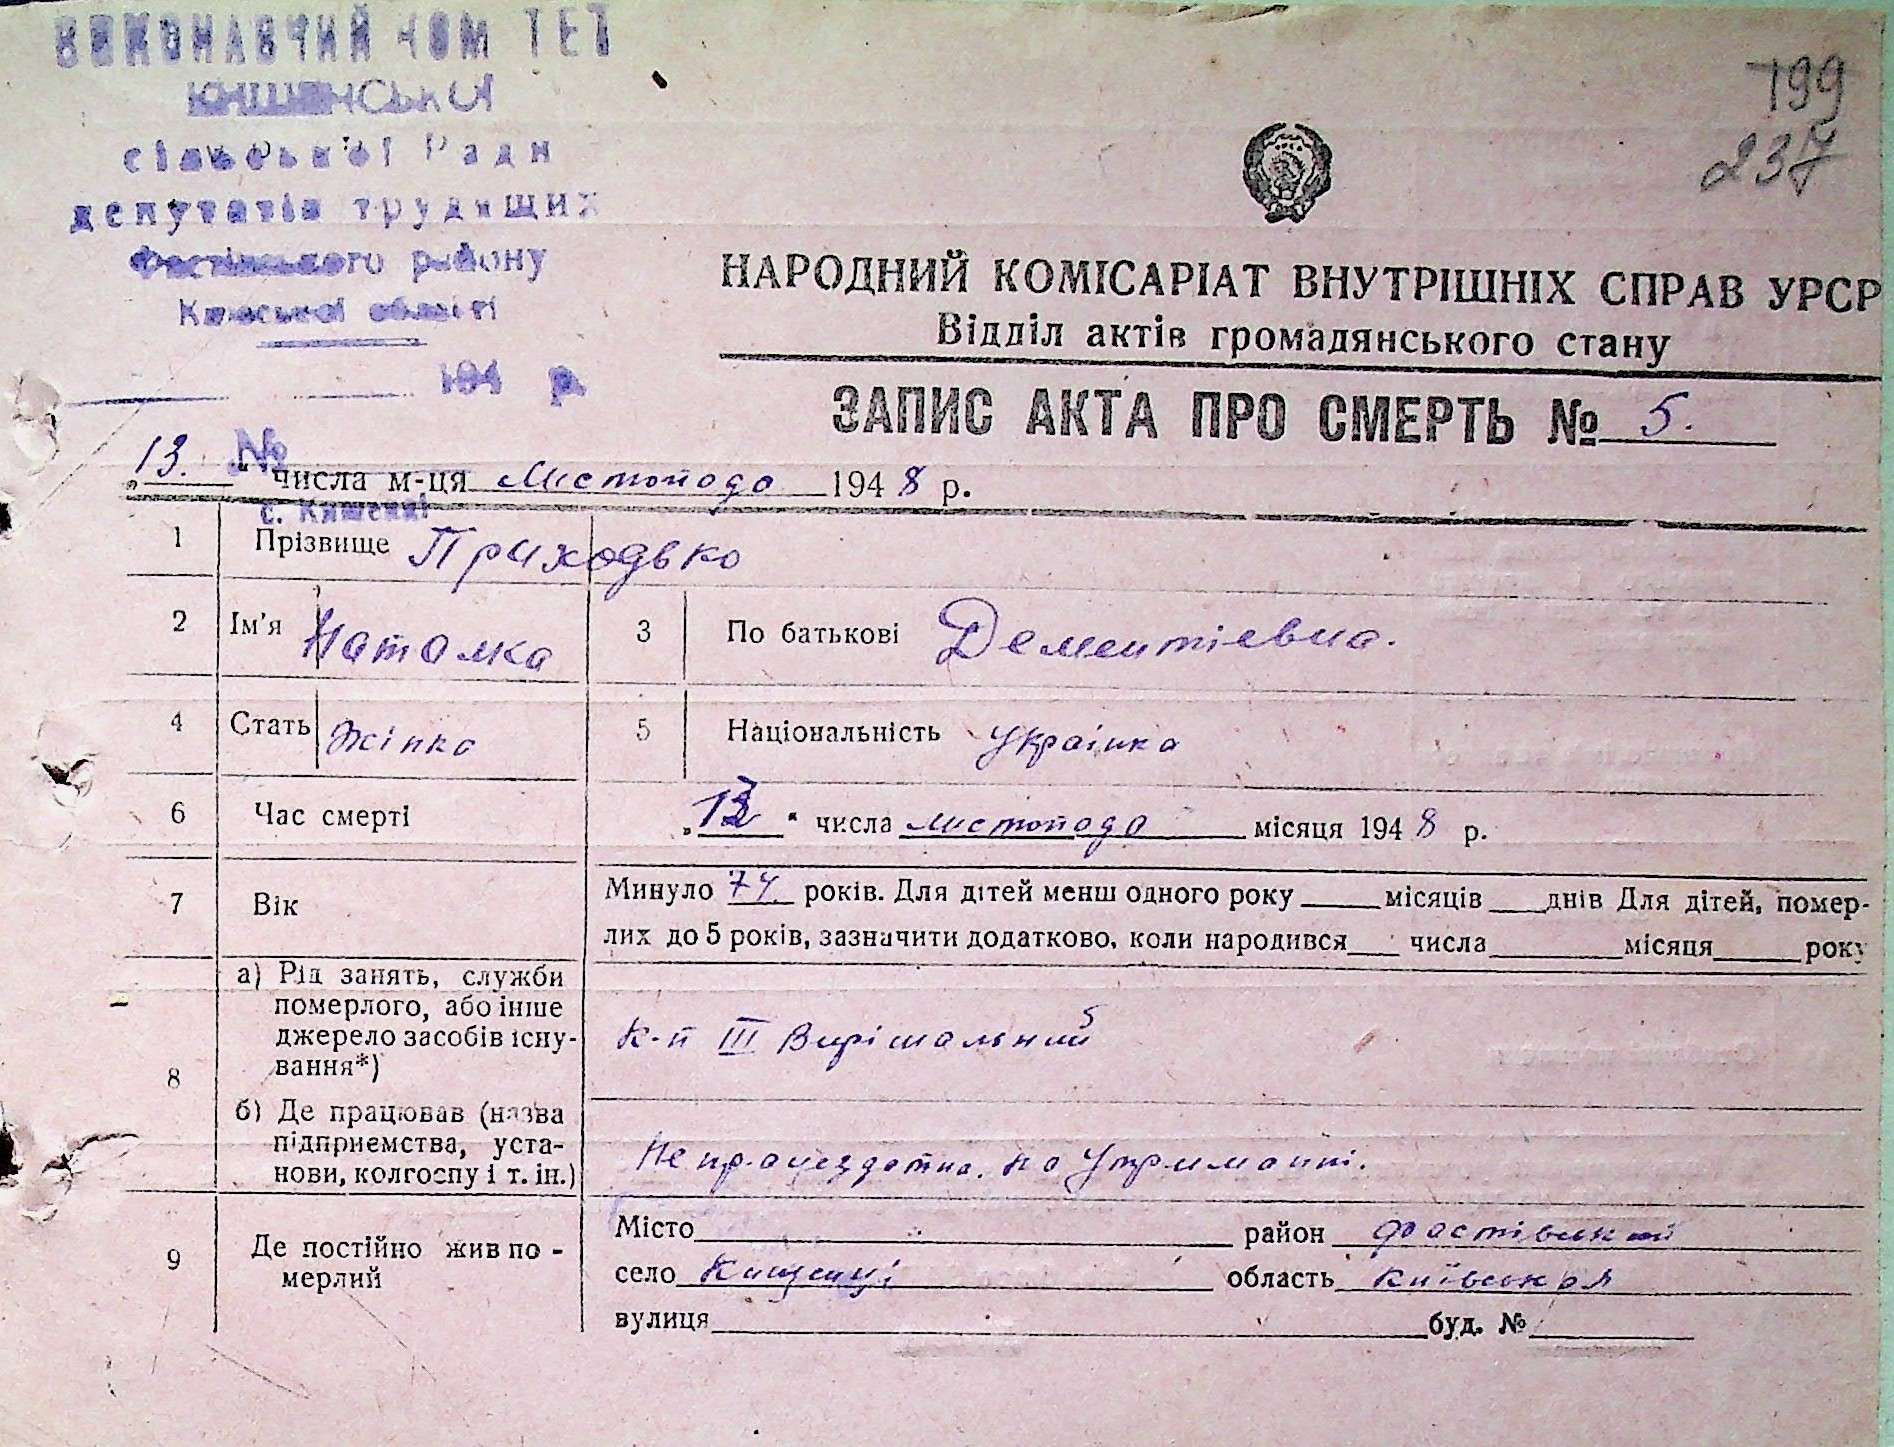 ВИКОНАВЧИЙ КОМ ТЕТ
сільської Ради
депутатів трудящих
Фастівського району
Київської області
194 р.
199
237
НАРОДНИЙ КОМІСАРІАТ ВНУТРІШНІХ СПРАВ УРСР
Відділ актів громадянського стану
ЗАПИС АКТА ПРО СМЕРТЬ № 5.
№
„13.“ числа м-ця Листопада 1948 р.
1 Прізвище Приходько
2 Ім’я Наталка 3 По батькові Дементіевна.
4 Стать Жінка 5 Національність Українка
6 Час смерті „ “ числа листопада місяця 1948 р.
7 Вік Минуло 74 років. Для дітей менш одного року місяців днів Для дітей, помер-
лих до 5 років, зазначити додатково, коли народився числа місяця року
8 а) Рід занять, служби
померлого, або інше
джерело засобів існу-
вання*)
К-п III Вирішальний 5
б) Де працював (назва
підприємства, уста-
нови, колгоспу і т. ін.)
Не працездатна. на Утриманні.
9 Де постійно жив по-
мерлий
Місто район Фастівський
село Кищенці область Київська
вулиця буд. №